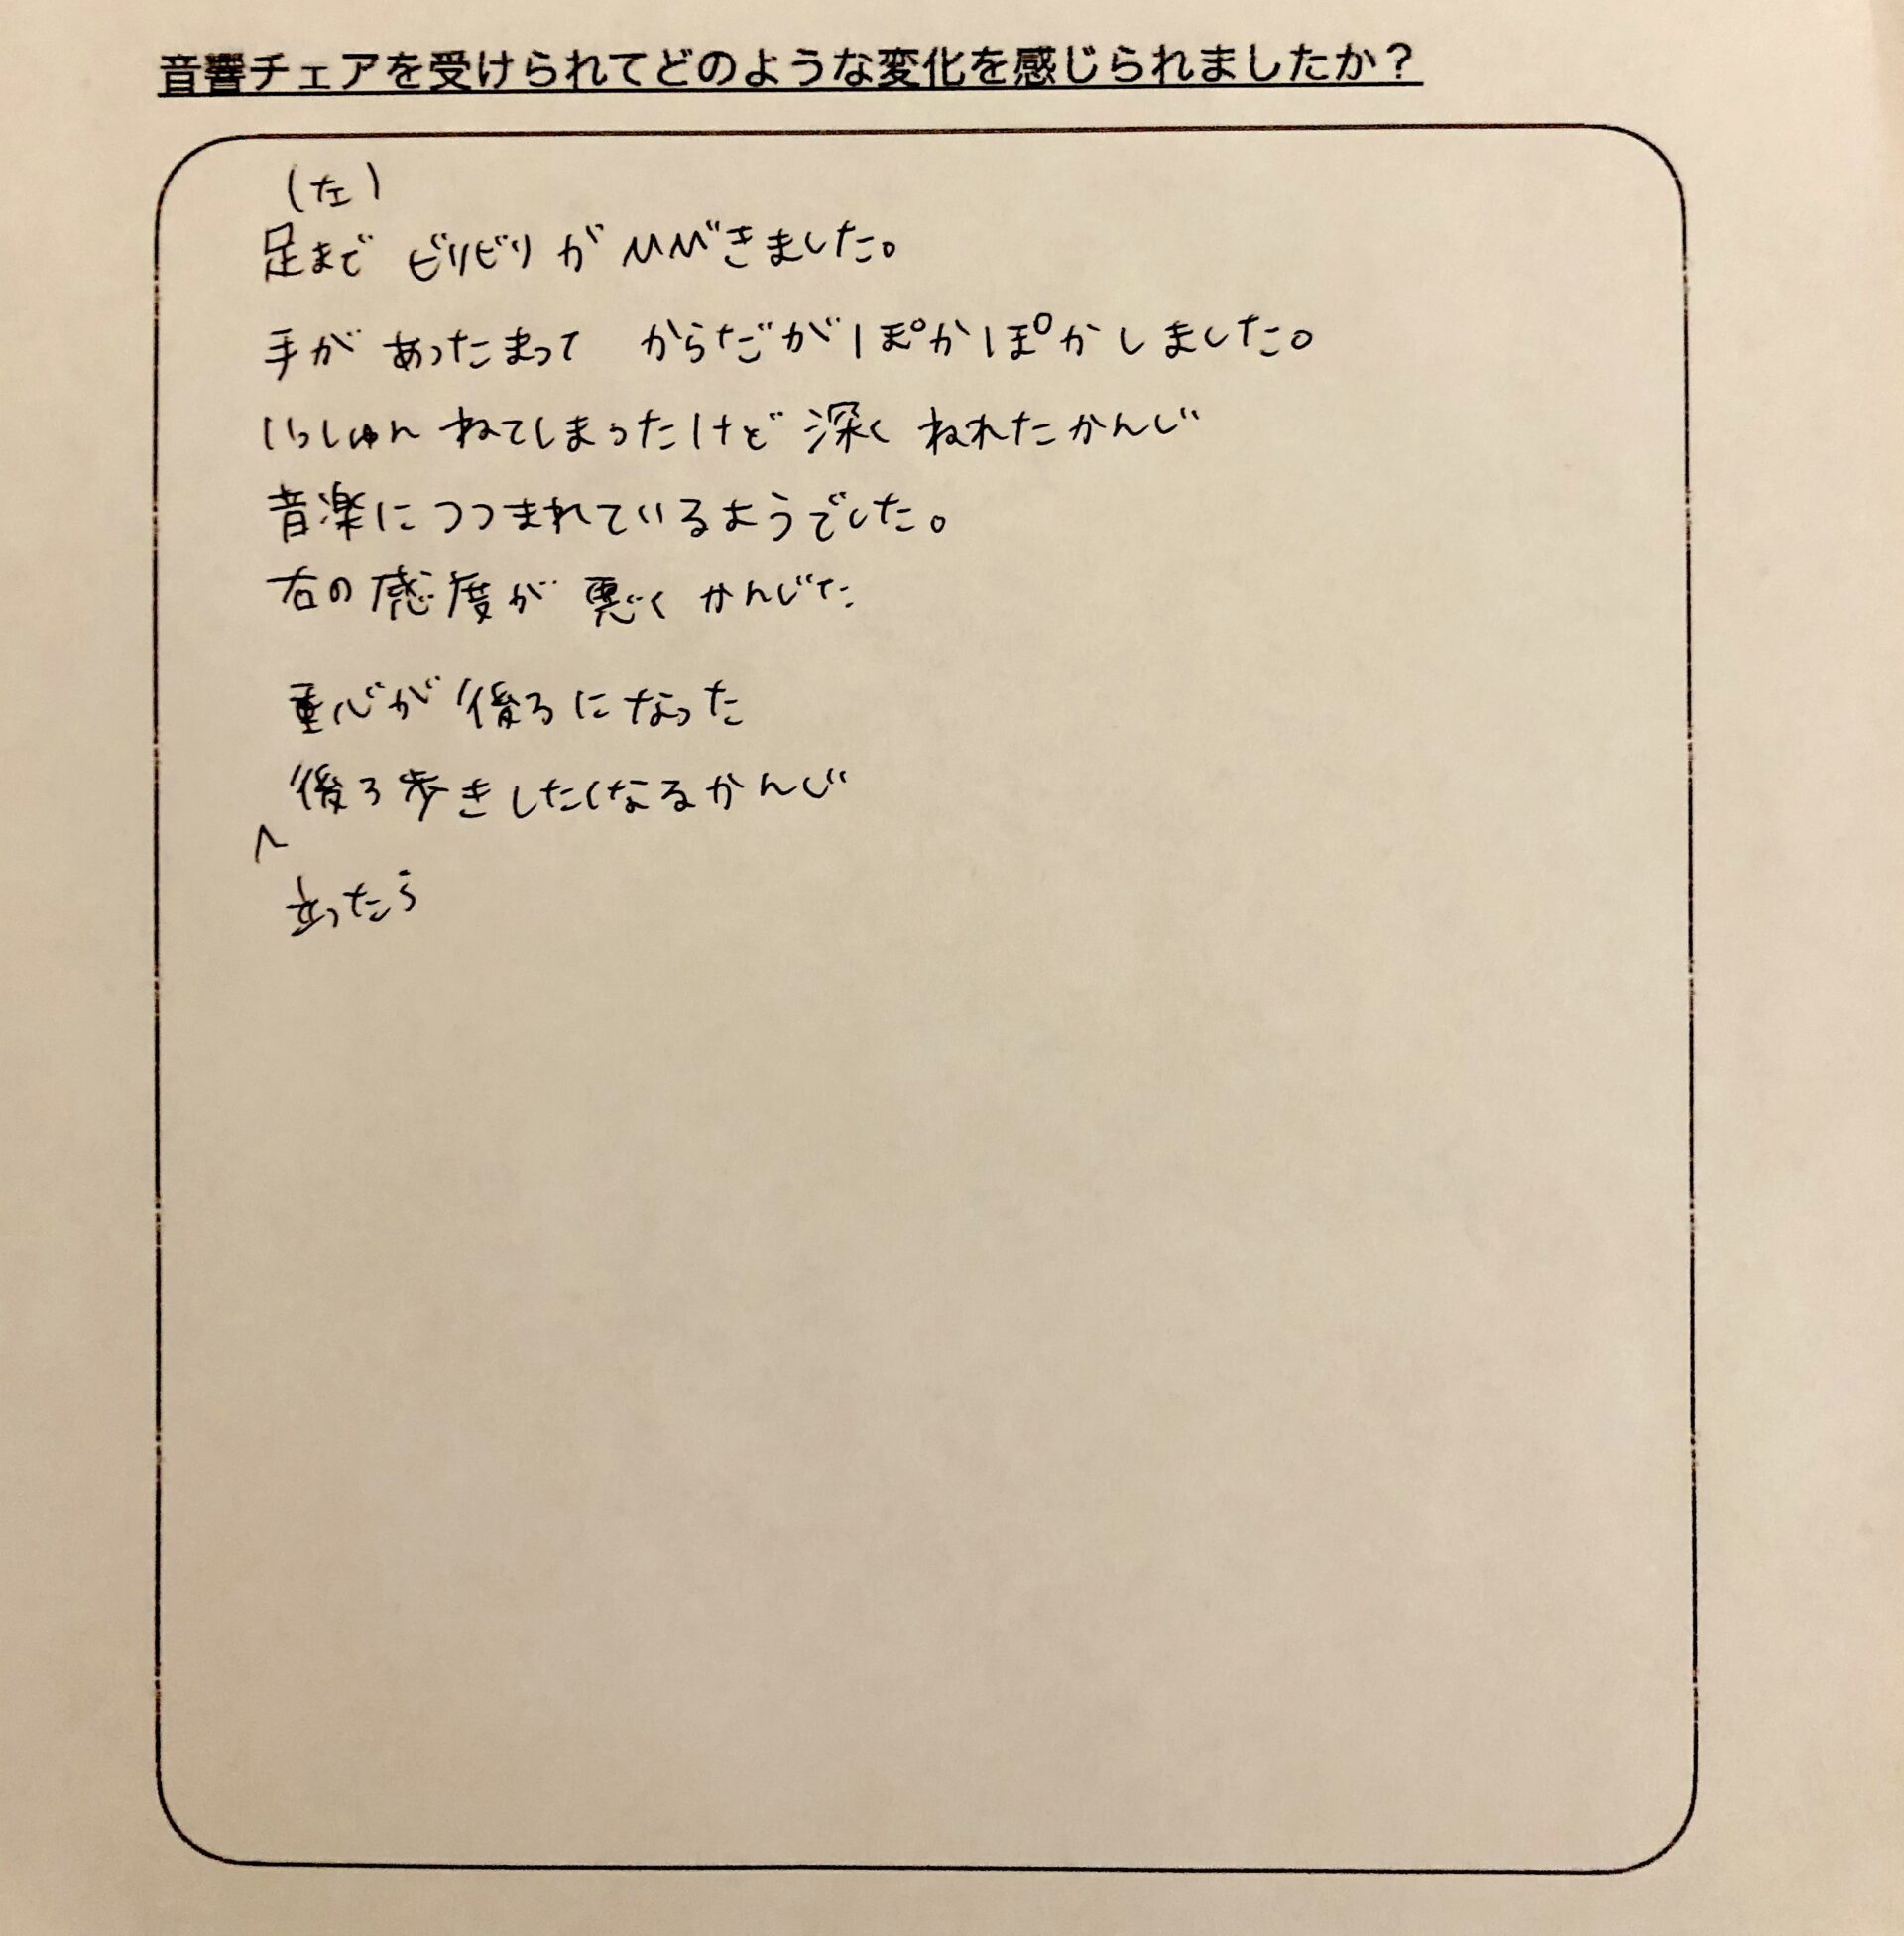 音響チェアを受けられてどのような変化を感じられましたか？
(左)
足まで ビリビリが ひびきました。
手が あったまって からだがぽかぽかしました。
いっしゅん ねてしまったけど 深く ねれたかんじ
音楽につつまれているようでした。
右の感度が 悪く かんじた
重心が後ろになった
後ろ歩きしたくなるかんじ
^
立ったら